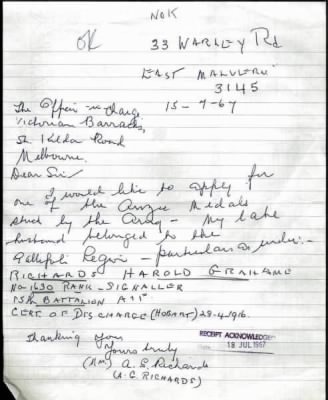 NOK
OK 33 WARLEY Rd
EAST MALVERN
3145
The Officer in Charge, 15-7-67
Victorian Barracks,
St Kilda Road
Melbourne.
Dear Sir/
I would like to apply for
one of the Anzac Medals
struck by the Army - My late
husband belonged to the
Gallipoli Legion - particulars as under:-
RICHARDS HAROLD GRAHAME
No 1630 RANK - SIGNALLER
15th BATTALION AIF
CERT. OF DISCHARGE (HOBART) 28-4-1916.
Thanking You
Yours truly
(Mrs) A. G. Richards
(A. G. RICHARDS)
RECEIPT ACKNOWLEDGED
18 JUL 1967